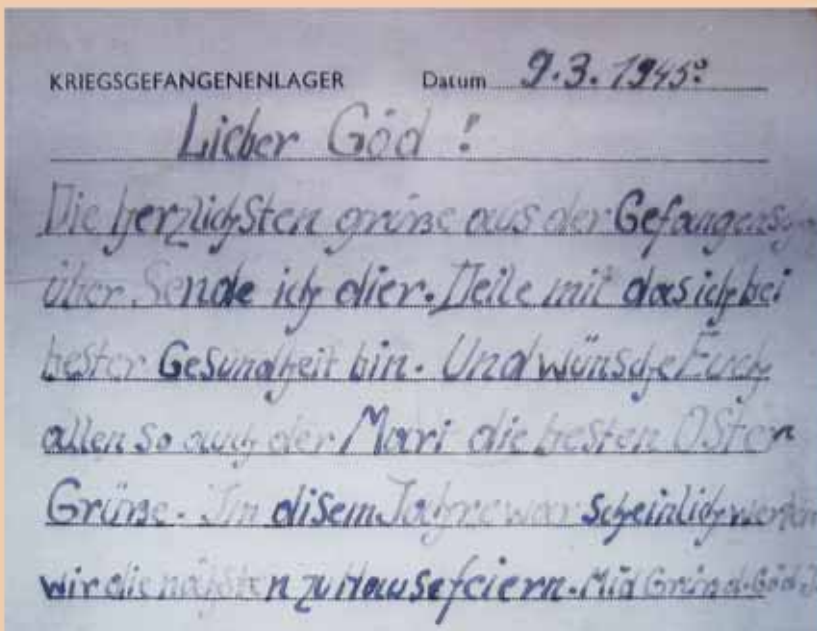 KRIEGSGEFANGENENLAGER Datum 9.3.1945
Lieber Göd !
Die herzlichsten grüße aus der Gefangensch
über Sende ich dier. Deile mit das ich bei
bester Gesundheit bin. Und wünsche Euch
allen so auch der Mari die besten Oster
Grüße. Im disem Jahre war scheinlich werden
wir die nähsten zu Hause feiern. Mid Gruß